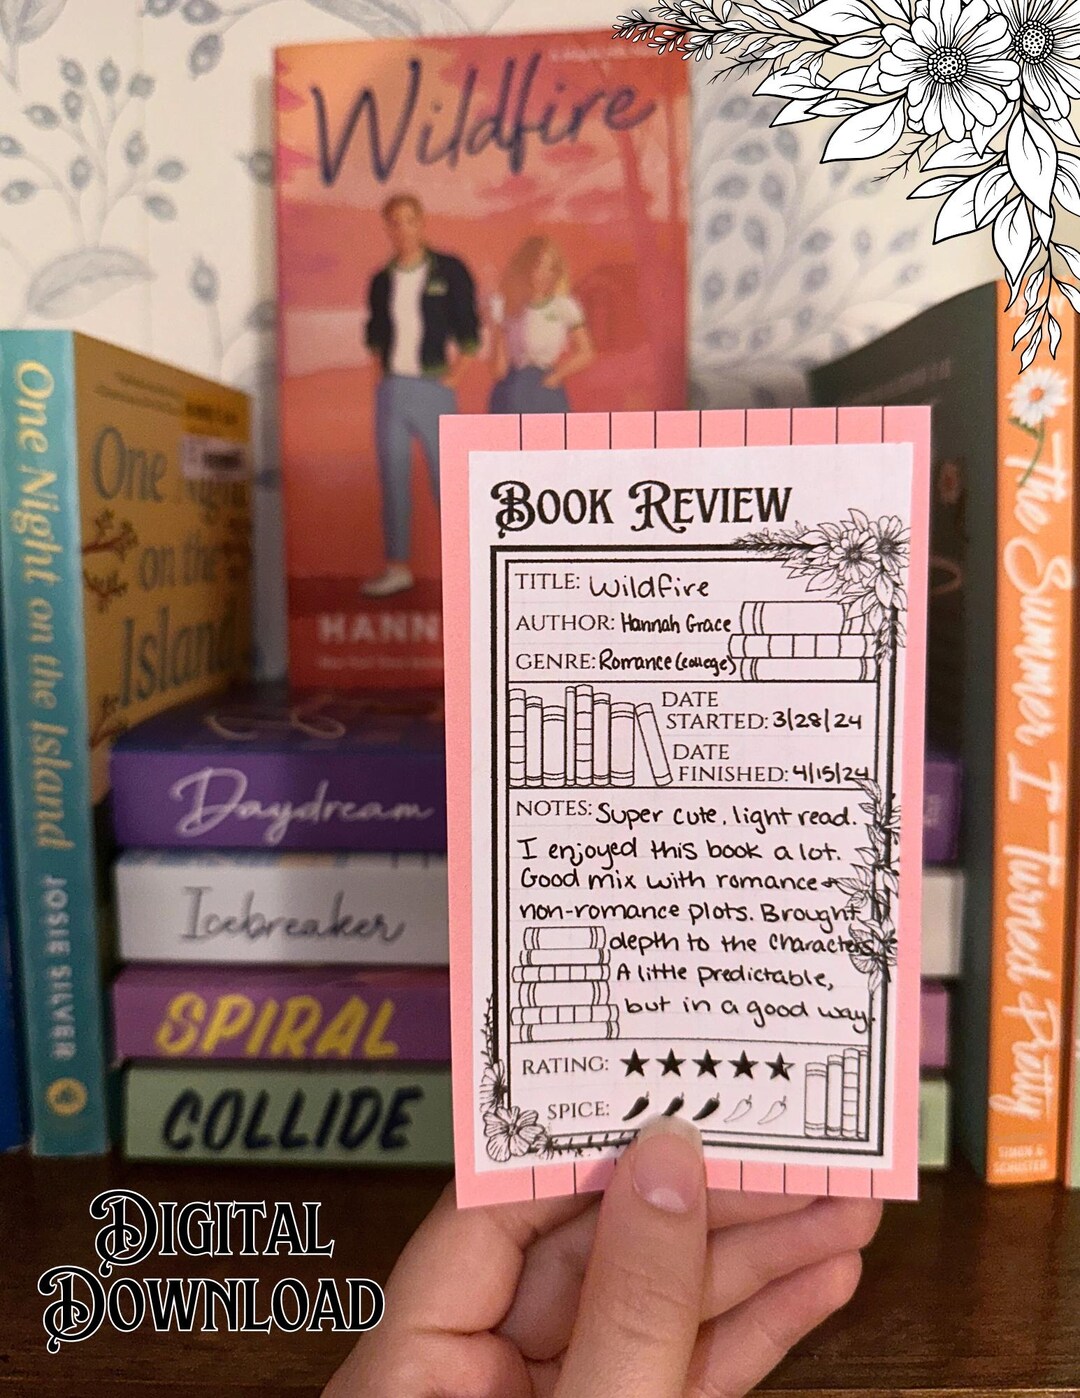 Wildfire
HANN
One Night on the Island
JOSIE SILVER
One Night
on the
Island
Daydream
Icebreaker
SPIRAL
COLLIDE
The Summer I Turned Pretty
SIMON &
SCHUSTER
BOOK REVIEW
TITLE: Wildfire
AUTHOR: Hannah Grace
GENRE: Romance (college)
DATE
STARTED: 3/28/24
DATE
FINISHED: 4/15/24
NOTES: Super cute, light read.
I enjoyed this book a lot.
Good mix with romance &
non-romance plots. Brought
depth to the characters.
A little predictable,
but in a good way.
RATING:
SPICE:
DIGITAL
DOWNLOAD